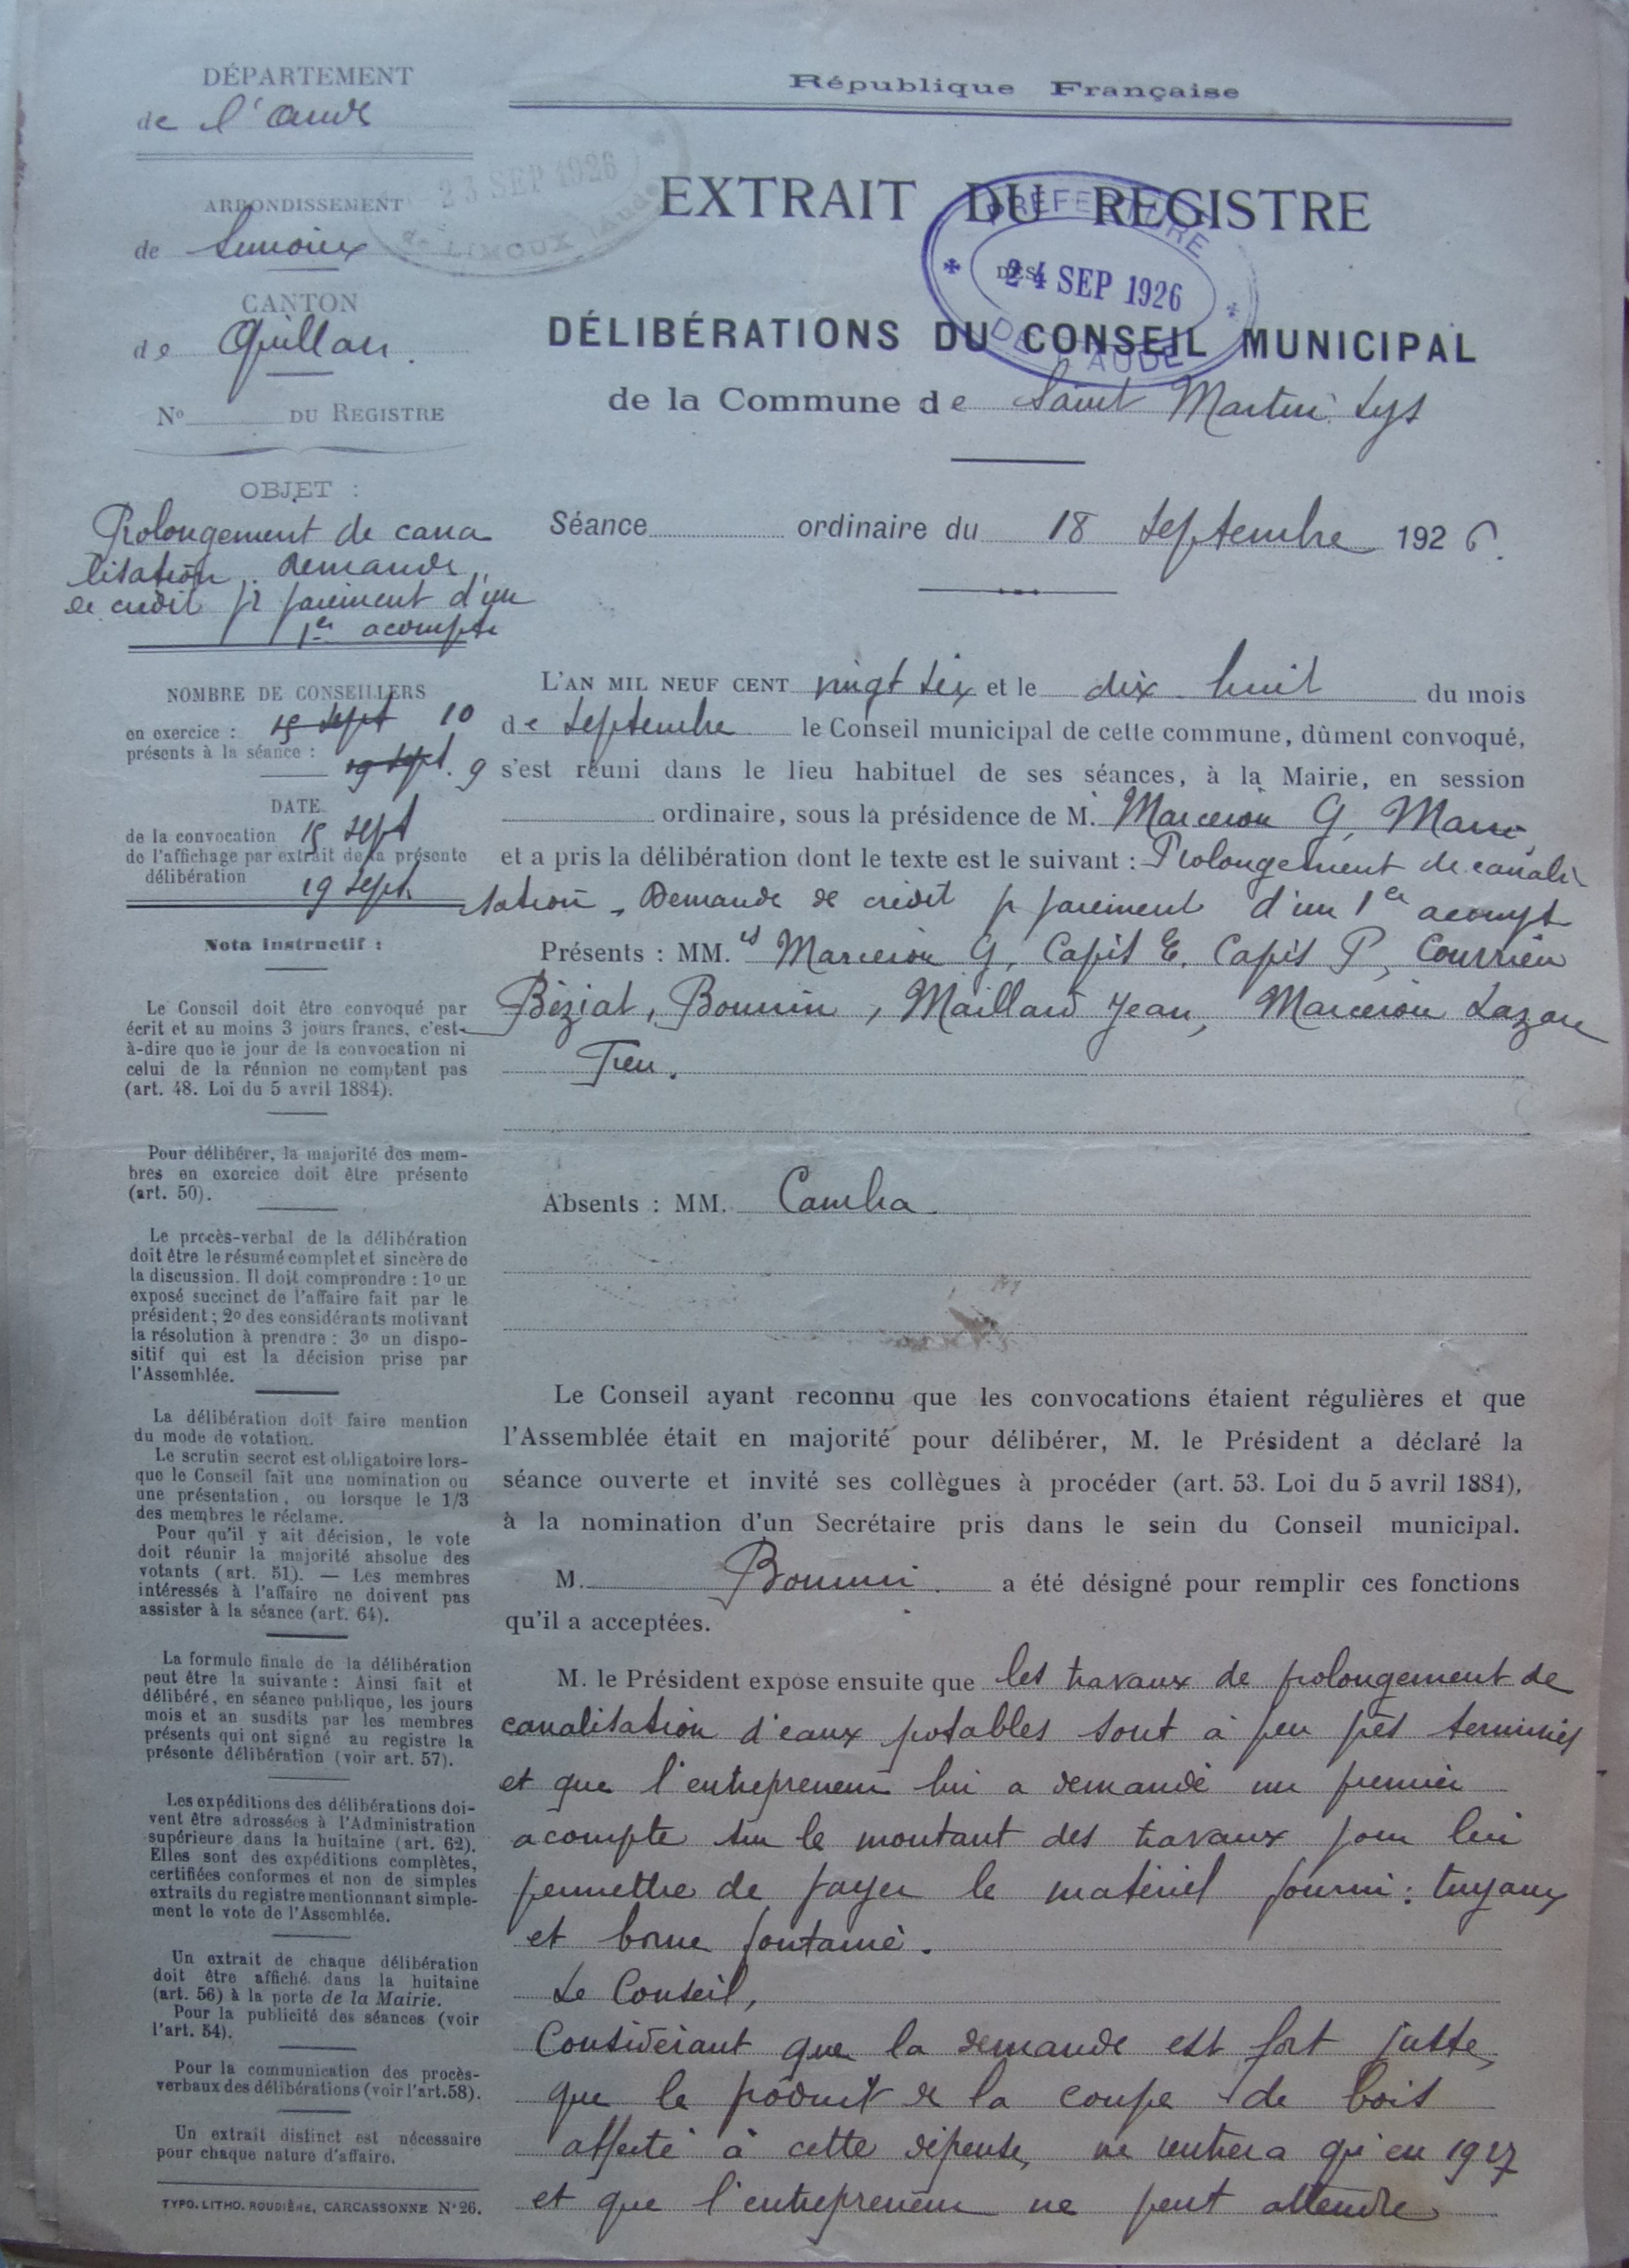 DÉPARTEMENT
de l'Aude
ARRONDISSEMENT
de Limoux
CANTON
de Quillan.
No DU REGISTRE
OBJET :
Prolongement de cana
lisation. Demande
de crédit pr paiement d'un
1er acompte
NOMBRE DE CONSEILLERS
en exercice : 15 sept 10
présents à la séance : 19 sept. 9
DATE
de la convocation 15 sept
de l'affichage par extrait de la présente
délibération 19 sept.
Nota instructif :
Le Conseil doit être convoqué par
écrit et au moins 3 jours francs, c'est-
à-dire que le jour de la convocation ni
celui de la réunion ne comptent pas
(art. 48. Loi du 5 avril 1884).
Pour délibérer, la majorité des mem-
bres en exercice doit être présente
(art. 50).
Le procès-verbal de la délibération
doit être le résumé complet et sincère de
la discussion. Il doit comprendre : 1o un
exposé succinct de l'affaire fait par le
président ; 2o des considérants motivant
la résolution à prendre : 3o un dispo-
sitif qui est la décision prise par
l'Assemblée.
La délibération doit faire mention
du mode de votation.
Le scrutin secret est obligatoire lors-
que le Conseil fait une nomination ou
une présentation, ou lorsque le 1/3
des membres le réclame.
Pour qu'il y ait décision, le vote
doit réunir la majorité absolue des
votants (art. 51). — Les membres
intéressés à l'affaire ne doivent pas
assister à la séance (art. 64).
La formule finale de la délibération
peut être la suivante : Ainsi fait et
délibéré, en séance publique, les jours
mois et an susdits par les membres
présents qui ont signé au registre la
présente délibération (voir art. 57).
Les expéditions des délibérations doi-
vent être adressées à l'Administration
supérieure dans la huitaine (art. 62).
Elles sont des expéditions complètes,
certifiées conformes et non de simples
extraits du registre mentionnant simple-
ment le vote de l'Assemblée.
Un extrait de chaque délibération
doit être affiché dans la huitaine
(art. 56) à la porte de la Mairie.
Pour la publicité des séances (voir
l'art. 54).
Pour la communication des procès-
verbaux des délibérations (voir l'art.58).
Un extrait distinct est nécessaire
pour chaque nature d'affaire.
TYPO. LITHO. ROUDIÈRE, CARCASSONNE N° 26.
République Française
23 SEP 1926
de LIMOUX (Aude)
EXTRAIT DU REGISTRE
PRÉFECTURE
DES
24 SEP 1926
DE L'AUDE
DÉLIBÉRATIONS DU CONSEIL MUNICIPAL
de la Commune de Saint Martin Lys
Séance ordinaire du 18 septembre 1926.
L'AN MIL NEUF CENT vingt six et le dix huit du mois
de septembre le Conseil municipal de cette commune, dûment convoqué,
s'est réuni dans le lieu habituel de ses séances, à la Mairie, en session
ordinaire, sous la présidence de M. Marceròu G, Maire
et a pris la délibération dont le texte est le suivant : Prolongement de canali
sation. Demande de crédit pr paiement d'un 1er acompte
Présents : MM.rs Marcerou G, Capis E. Capis P, Courrieu
Béziat, Bounin, Maillard Jean, Marcerou Lazare
Tieu.
Absents : MM. Cambra.
Le Conseil ayant reconnu que les convocations étaient régulières et que
l'Assemblée était en majorité pour délibérer, M. le Président a déclaré la
séance ouverte et invité ses collègues à procéder (art. 53. Loi du 5 avril 1884),
à la nomination d'un Secrétaire pris dans le sein du Conseil municipal.
M. Bounin. a été désigné pour remplir ces fonctions
qu'il a acceptées.
M. le Président expose ensuite que les travaux de prolongement de
canalisation d'eaux potables sont à peu près terminés
et que l'entrepreneur lui a demandé un premier
acompte sur le montant des travaux pour lui
permettre de payer le matériel fourni : tuyaux
et borne fontaine.
Le Conseil,
Considérant que la demande est fort juste,
que le produit de la coupe de bois
affecté à cette dépense, ne rentrera qu'en 1927
et que l'entrepreneur ne peut attendre